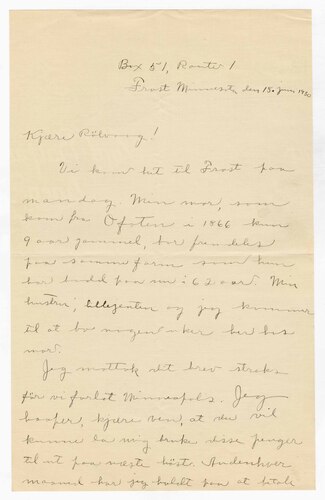 Box 51, Route 1
Frost Minnesota, den 18. juni 1930
Kjære Rölvaag!
Vi kom hit til Frost paa
mandag. Min mor, som
kom fra Ofoten i 1866 kun
9 aar gammel, bor fremdeles
paa samme farm som hun
har bodd paa nu i 62 aar. Min
hustru, og jeg kommer
til at bo nogen uker her hos
mor.
Jeg mottok dit brev straks
för vi forlot Minneapolis. Jeg
haaper, kjære ven, at du vil
kunne la mig bruke disse penger
til ut paa næste höst. Andenhver
maaned har jeg holdt paa at betale